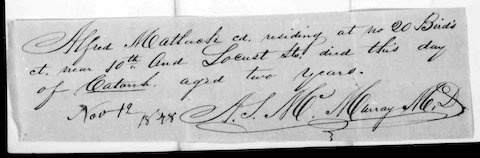 Alfred Matlack cd. residing at no 20 Bird's
ct. near 10th and Locust Sts. died this day
of Catarrh. aged two years.
Nov 12 1848 A. S. Mc. Murray M.D